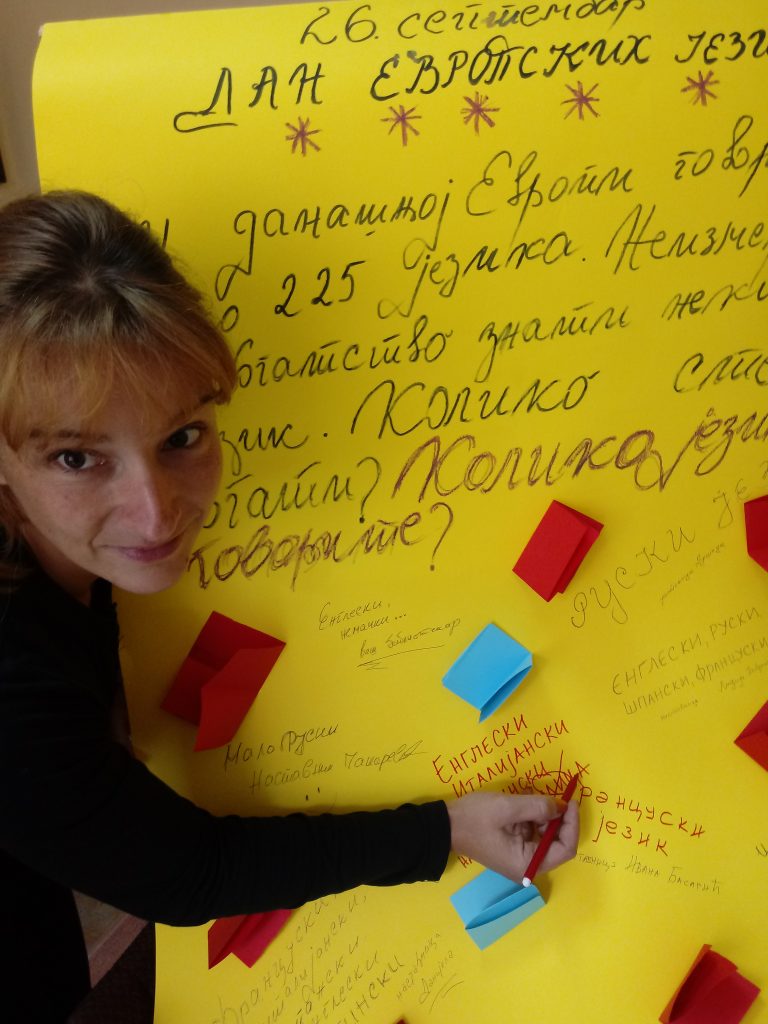 26. септембар
ДАН ЕВРОПСКИХ ЈЕЗИ
данашњој Европи гово
225 језика. Неизме
богатство знати неки
језик. Колико сте
богати? Колико јези
говорите?
РУСКИ ЈЕ
Енглески,
немачки...
ваш библиотекар
ЕНГЛЕСКИ, РУСКИ,
ШПАНСКИ, ФРАНЦУСКИ
Мало Руски
Наставник
ЕНГЛЕСКИ
ИТАЛИЈАНСКИ
ФРАНЦУСКИ
језик
Ивана
Француски,
италијански,
енглески
наставница